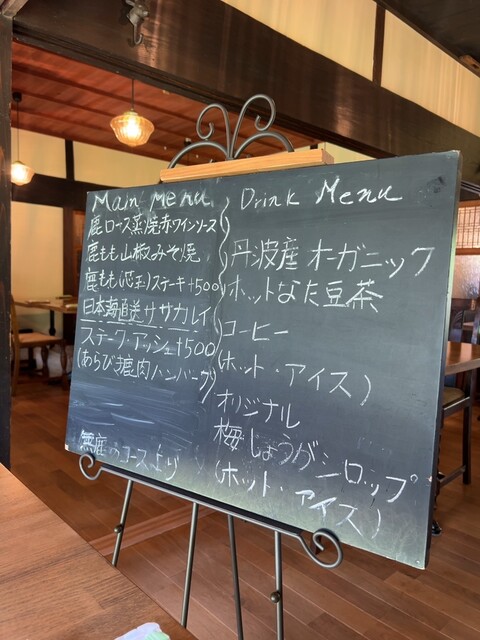 Main Menu
鹿ロース蒸焼赤ワインソース
鹿もも山椒みそ焼
鹿もも(芯玉)ステーキ+500
日本海直送ササカレイ
ステーク・アッシュ+500
(あらび挽肉ハンバーグ)
コースより
Drink Menu
丹波産 オーガニック
ホットなた豆茶
コーヒー
(ホット・アイス)
オリジナル
梅しょうがシロップ
(ホット・アイス)